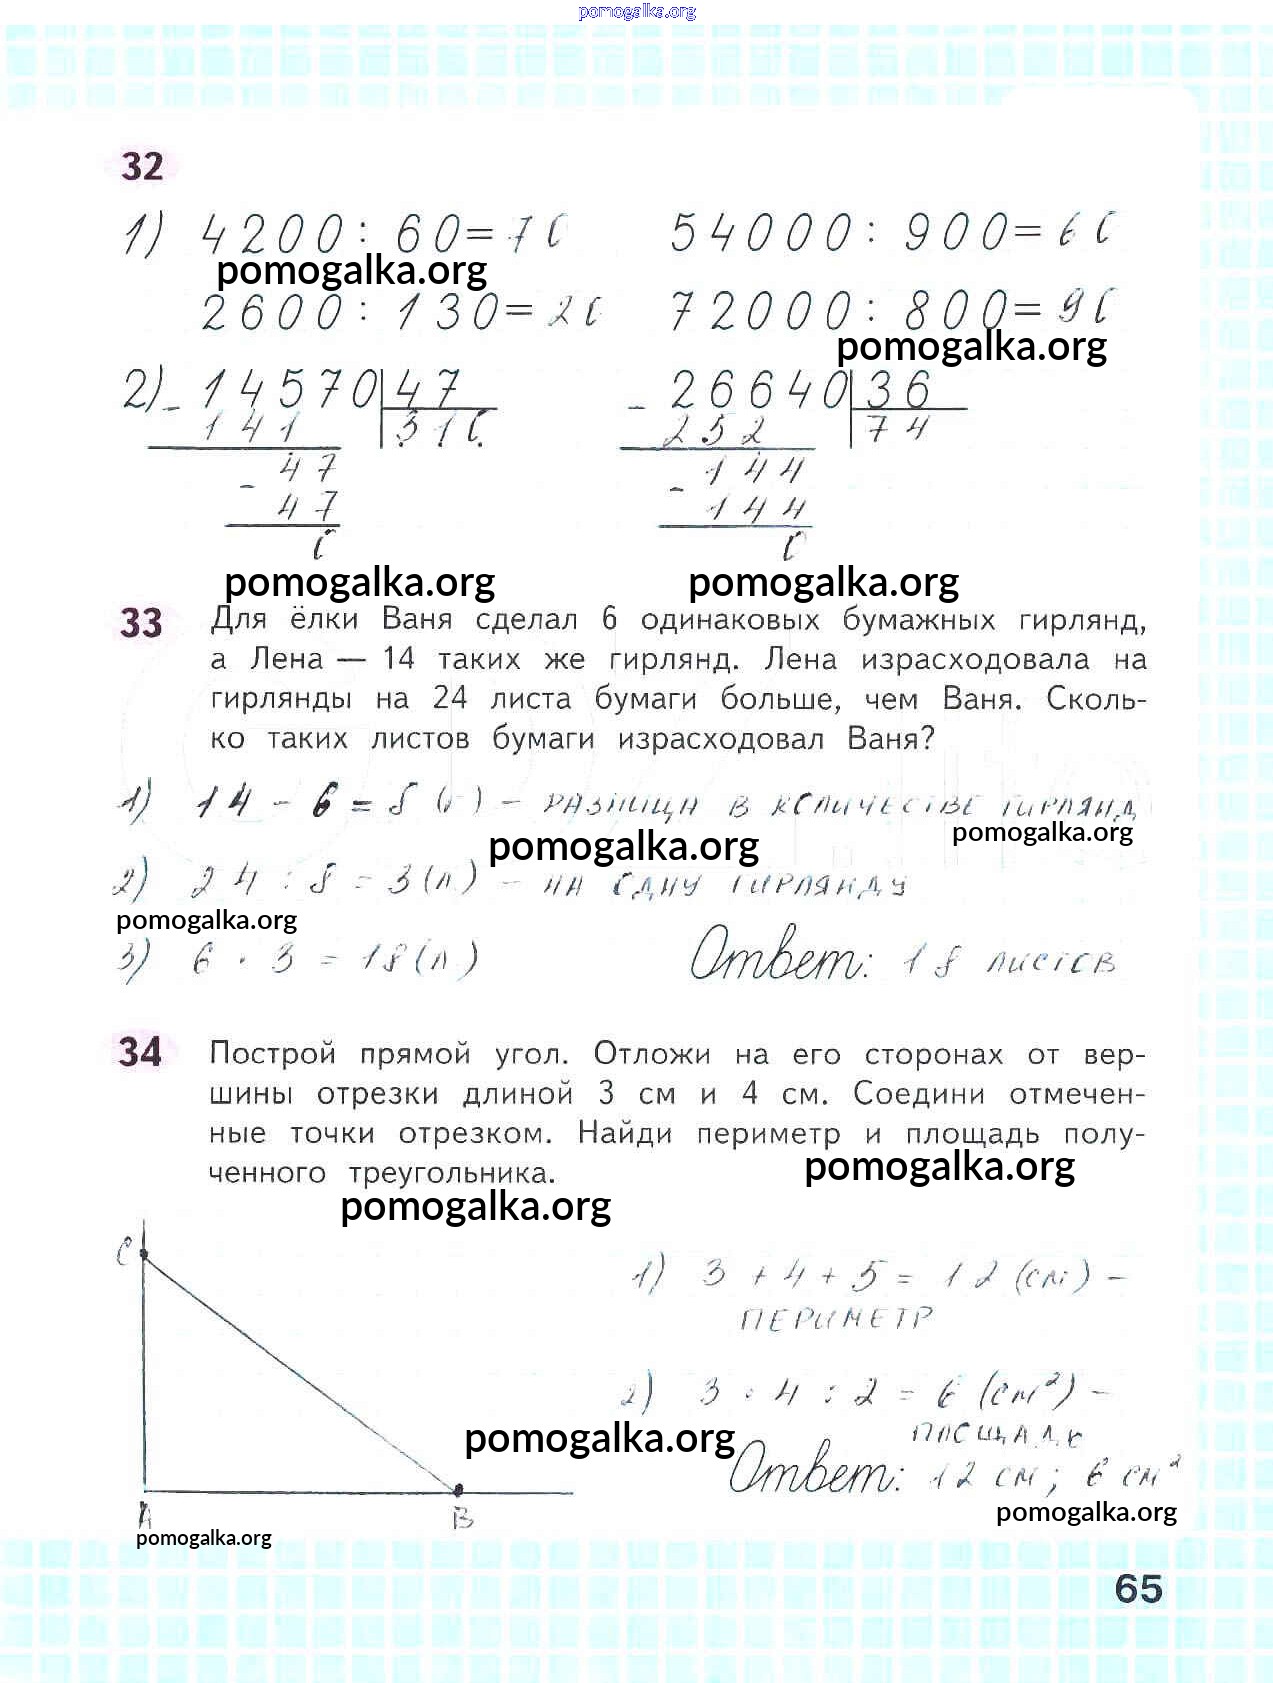 pomogalka.org
32
1) 4200 : 60 = 70 54000 : 900 = 60
pomogalka.org
2600 : 130 = 20 72000 : 800 = 90
pomogalka.org
2) - 14570 47 - 26640 36
141 310. 252 74
- 47 - 144
47 144
0 0
pomogalka.org pomogalka.org
33 Для ёлки Ваня сделал 6 одинаковых бумажных гирлянд,
а Лена — 14 таких же гирлянд. Лена израсходовала на
гирлянды на 24 листа бумаги больше, чем Ваня. Сколь-
ко таких листов бумаги израсходовал Ваня?
1) 14 - 6 = 8 (г) - РАЗНИЦА В КОЛИЧЕСТВЕ ГИРЛЯНД
pomogalka.org pomogalka.org
2) 24 : 8 = 3 (л) - НА ОДНУ ГИРЛЯНДУ
pomogalka.org
3) 6 · 3 = 18 (л) Ответ: 18 листов
34 Построй прямой угол. Отложи на его сторонах от вер-
шины отрезки длиной 3 см и 4 см. Соедини отмечен-
ные точки отрезком. Найди периметр и площадь полу-
ченного треугольника.
pomogalka.org
pomogalka.org
C
1) 3 + 4 + 5 = 12 (см) -
ПЕРИМЕТР
2) 3 · 4 : 2 = 6 (см²) -
ПЛОЩАДЬ
pomogalka.org
Ответ: 12 см; 6 см²
A B
pomogalka.org
pomogalka.org
65